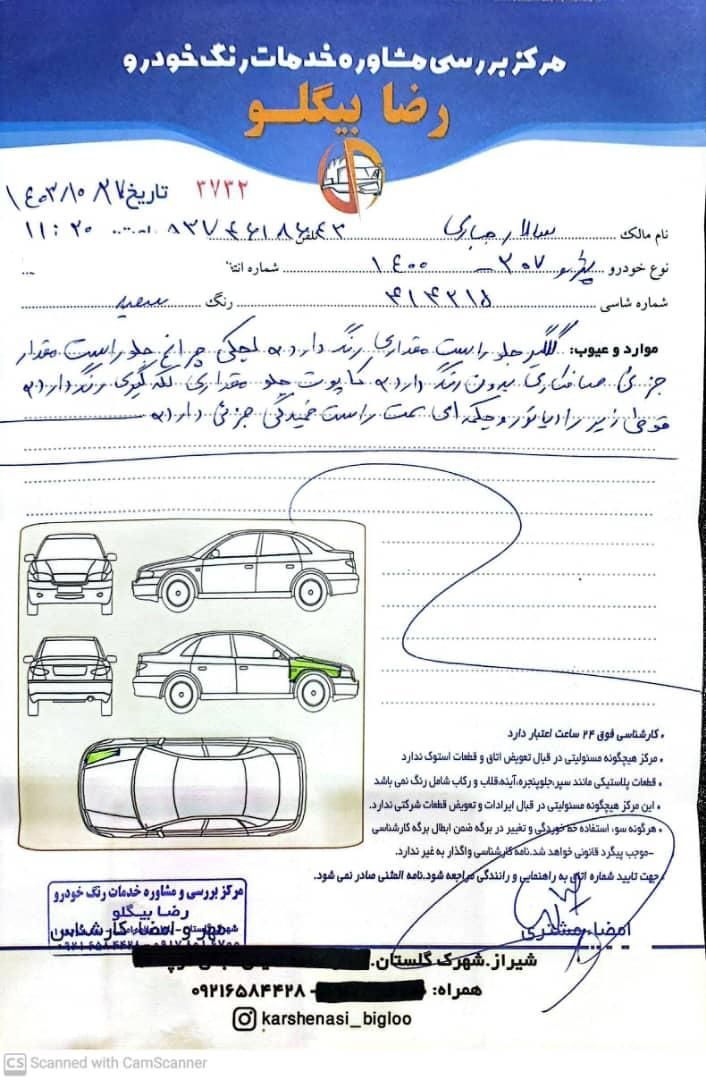 مرکز بررسی مشاوره خدمات رنگ خودرو
رضا بیگلو
۳۷۳۲
تاریخ ۱۴۰۳/۱۰/۲۷
نام مالک سالار جباری تلفن ساعت ۱۱:۲۰
نوع خودرو پژو ۲۰۷ - ۱۴۰۰ شماره انتظ
شماره شاسی ۴۱۴۲۱۵ رنگ سفید
موارد و عیوب: گلگیر جلو راست مقداری رنگ دارد، لچکی چراغ جلو راست مقدار
جزئی صافکاری بدون رنگ دارد، کاپوت جلو مقداری لکه گیری رنگ دارد،
قوطی زیر رادیاتور و چکمه ای سمت راست خمیدگی جزئی دارد،
• کارشناسی فوق ۲۴ ساعت اعتبار دارد
• مرکز هیچگونه مسئولیتی در قبال تعویض اتاق و قطعات استوک ندارد
• قطعات پلاستیکی مانند سپر،جلوپنجره،آینه،قلاب و رکاب شامل رنگ نمی باشد
• این مرکز هیچگونه مسئولیتی در قبال ایرادات و تعویض قطعات شرکتی ندارد.
• هرگونه سوء استفاده خط خوردگی و تغییر در برگه ضمن ابطال برگه کارشناسی
-موجب پیگرد قانونی خواهد شد.نامه کارشناسی واگذار به غیر ندارد.
-جهت تایید شماره اتاق به راهنمایی و رانندگی مراجعه شود.نامه المثنی صادر نمی شود.
مرکز بررسی و مشاوره خدمات رنگ خودرو
رضا بیگلو
مهر و امضاء کارشناس
امضاء مشتری
شیراز.شهرک گلستان.
همراه: - ۰۹۲۱۶۵۸۴۴۲۸
karshenasi_bigloo
CS Scanned with CamScanner